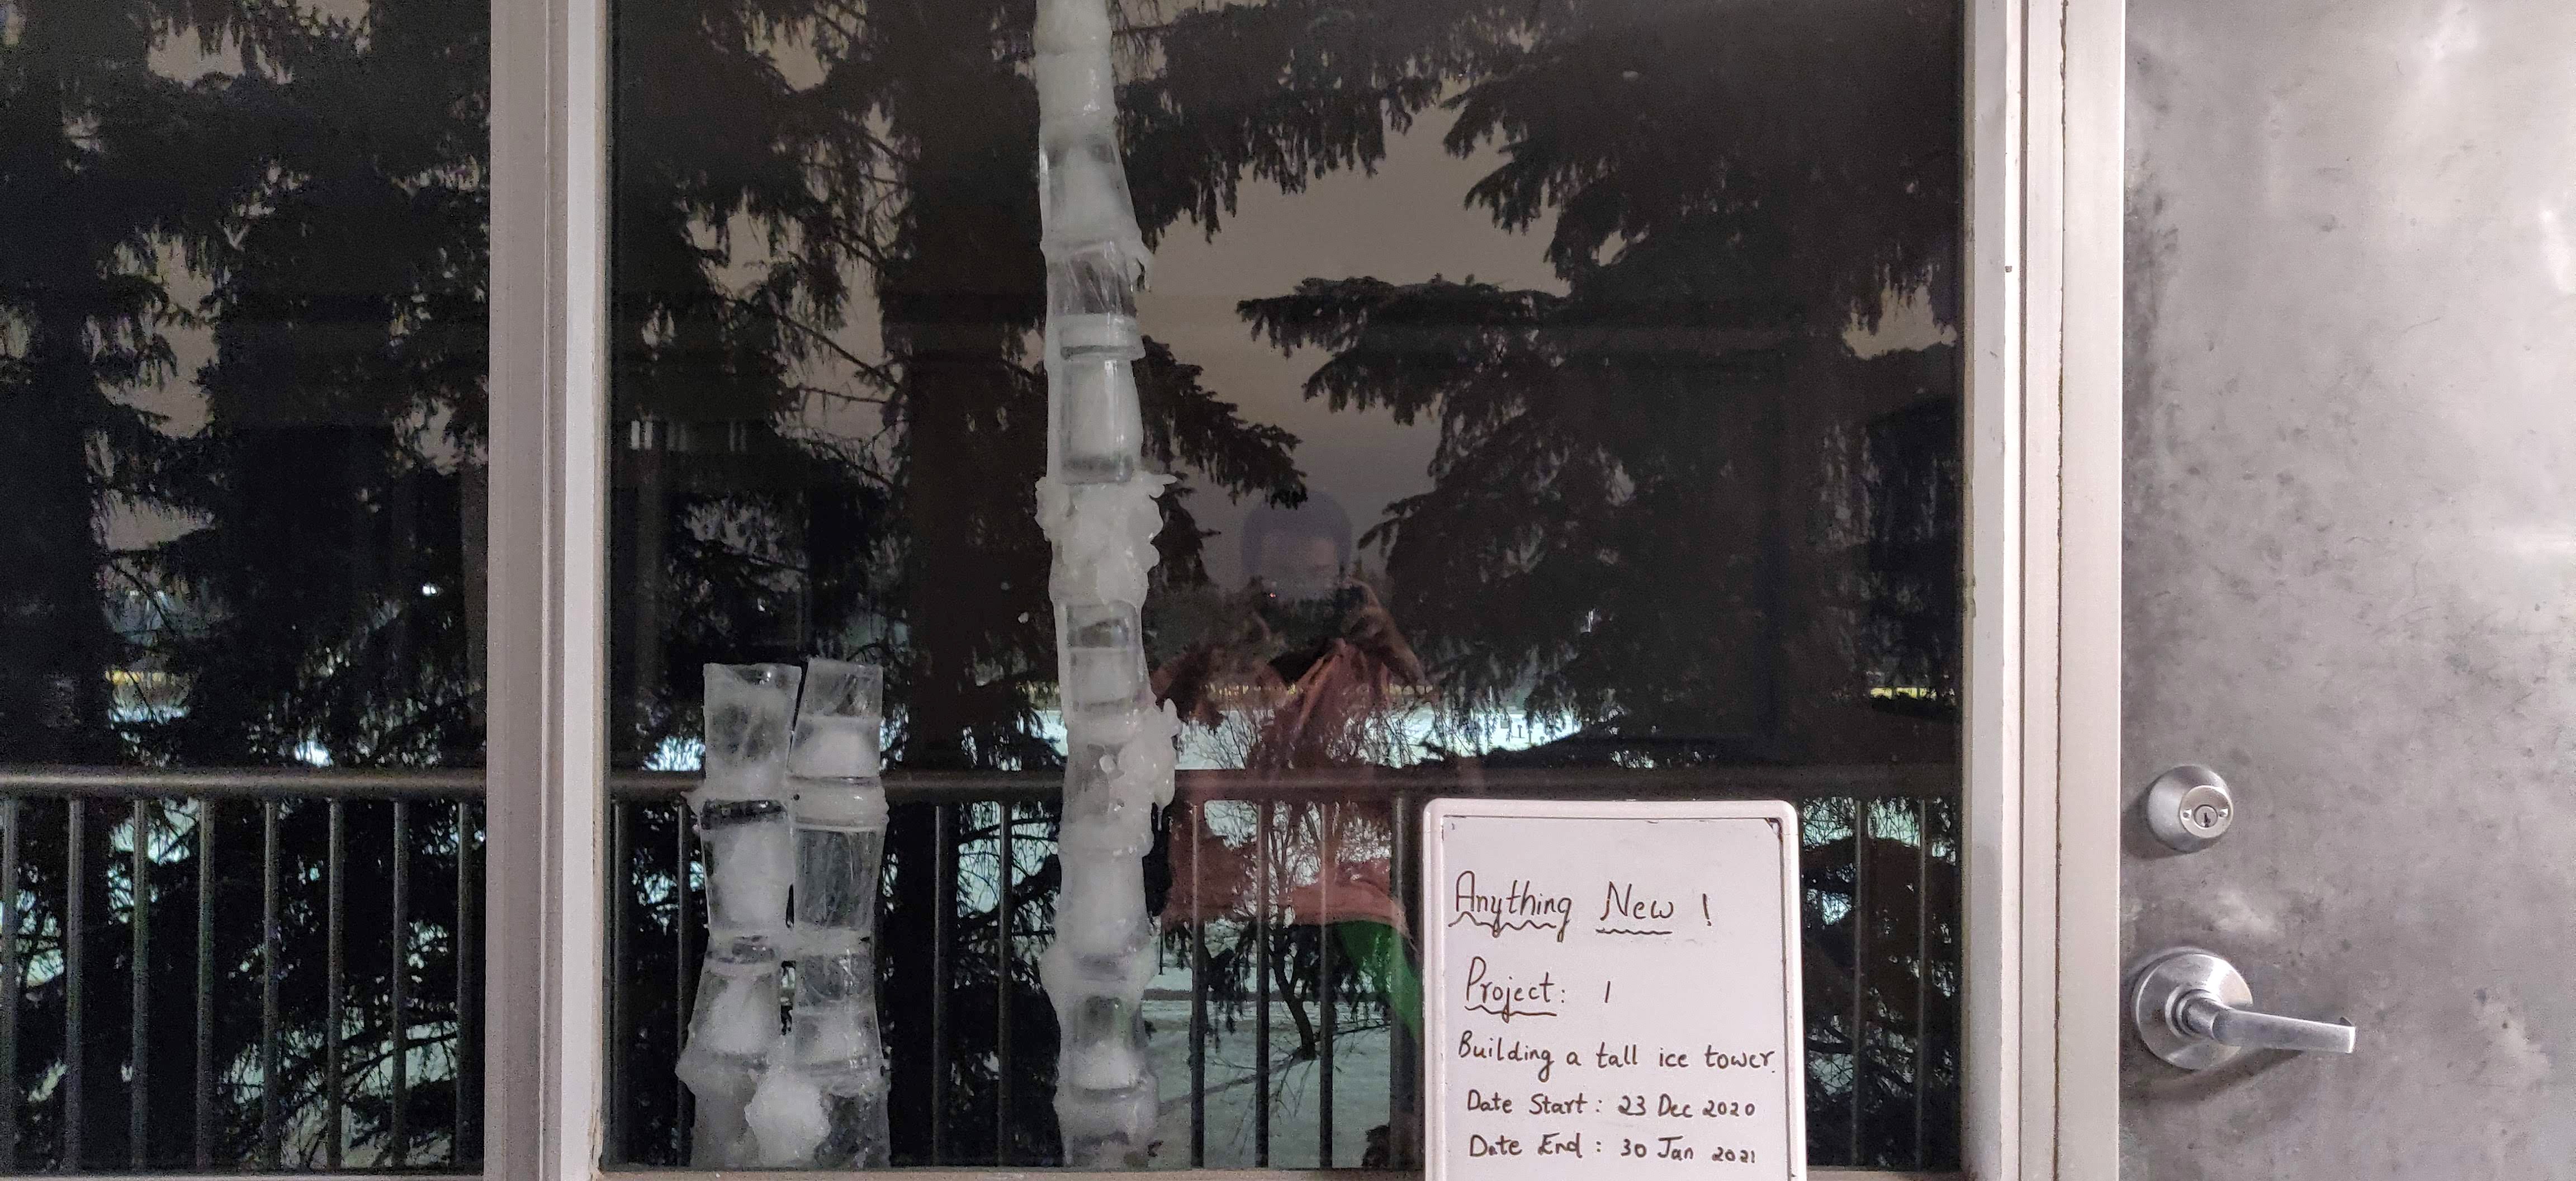 Anything New !
Project: 1
Building a tall ice tower.
Date Start : 23 Dec 2020
Date End : 30 Jan 2021